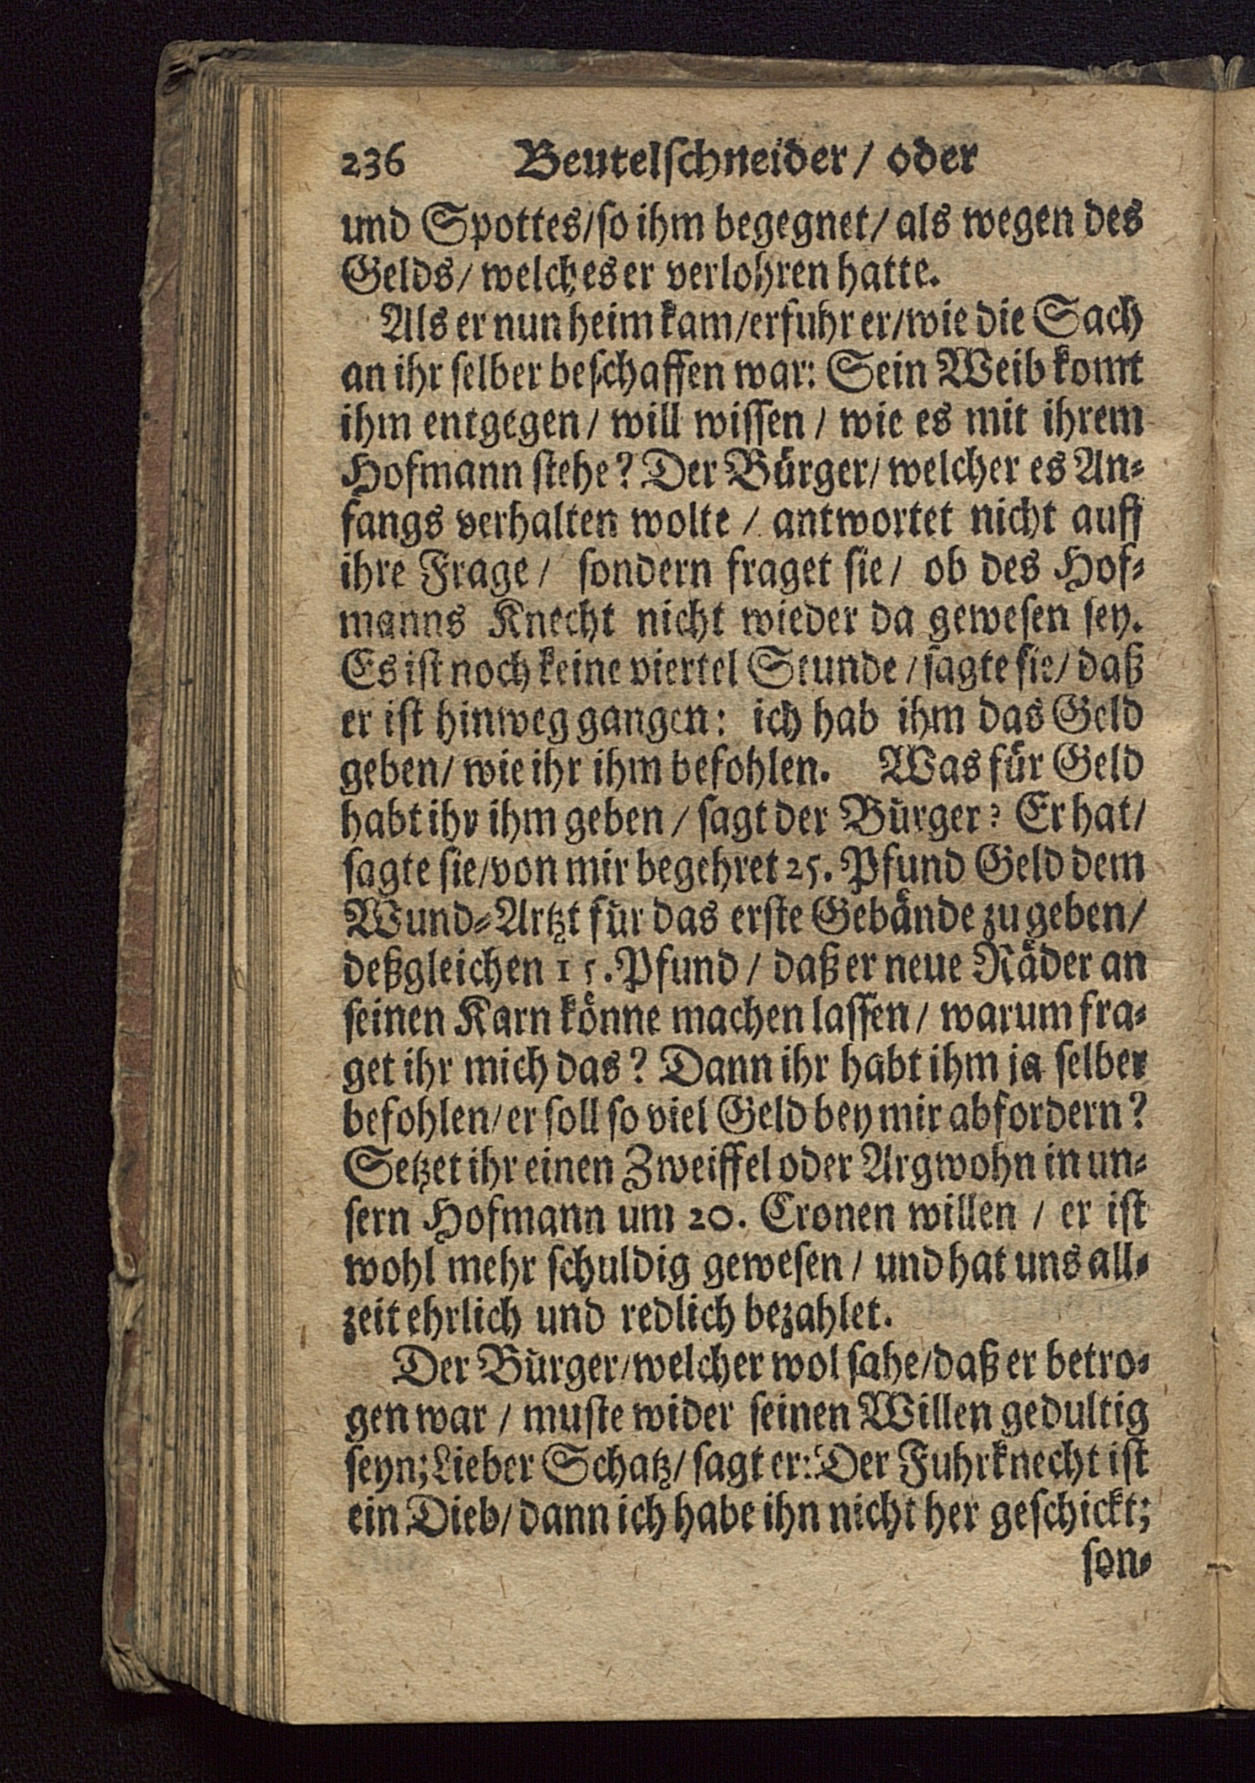 236 Beutelſchneider / oder
und Spottes / ſo ihm begegnet / als wegen des
Gelds / welches er verlohren hatte.
Als er nun heim kam / erfuhr er / wie die Sach
an ihr ſelber beſchaffen war: Sein Weib komt
ihm entgegen / will wiſſen / wie es mit ihrem
Hofmann ſtehe? Der Bürger / welcher es An⸗
fangs verhalten wolte / antwortet nicht auff
ihre Frage / ſondern fraget ſie / ob des Hof⸗
manns Knecht nicht wieder da geweſen ſey.
Es iſt noch keine viertel Stunde / ſagte ſie / daß
er iſt hinweg gangen: ich hab ihm das Geld
geben / wie ihr ihm befohlen. Was für Geld
habt ihr ihm geben / ſagt der Bürger? Er hat /
ſagte ſie / von mir begehret 25. Pfund Geld dem
Wund⸗Artzt für das erſte Gebände zu geben /
deßgleichen 15. Pfund / daß er neue Räder an
ſeinen Karn könne machen laſſen / warum fra⸗
get ihr mich das? Dann ihr habt ihm ja ſelber
befohlen / er ſoll ſo viel Geld bey mir abfordern?
Setzet ihr einen Zweiffel oder Argwohn in un⸗
ſern Hofmann um 20. Cronen willen / er iſt
wohl mehr ſchuldig geweſen / und hat uns all⸗
zeit ehrlich und redlich bezahlet.
Der Bürger / welcher wol ſahe / daß er betro⸗
gen war / muſte wider ſeinen Willen gedultig
ſeyn; Lieber Schatz / ſagt er: Der Fuhrknecht iſt
ein Dieb / dann ich habe ihn nicht her geſchickt;
ſon⸗